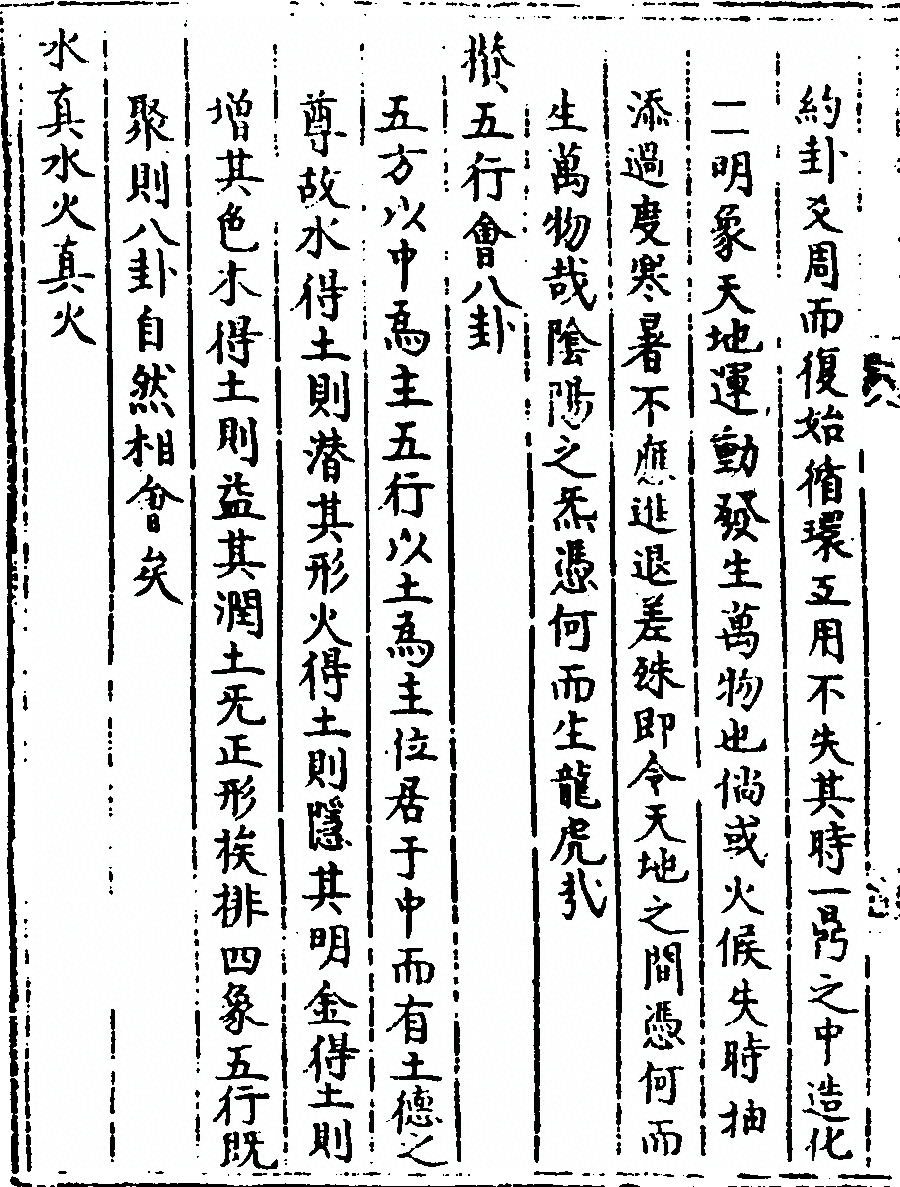 約卦爻周而復始循環互用不失其時一鼎之中造化
二明象天地運動發生萬物也倘或火候失時抽
添過度寒暑不應進退差殊即令天地之間憑何而
生萬物哉陰陽之炁憑何而生龍虎哉
攅五行會八卦
五方以中為主五行以土為主位居于中而有土德之
尊故水得土則潛其形火得土則隱其明金得土則
增其色木得土則益其潤土无正形挨排四象五行既
聚則八卦自然相會矣
水真水火真火